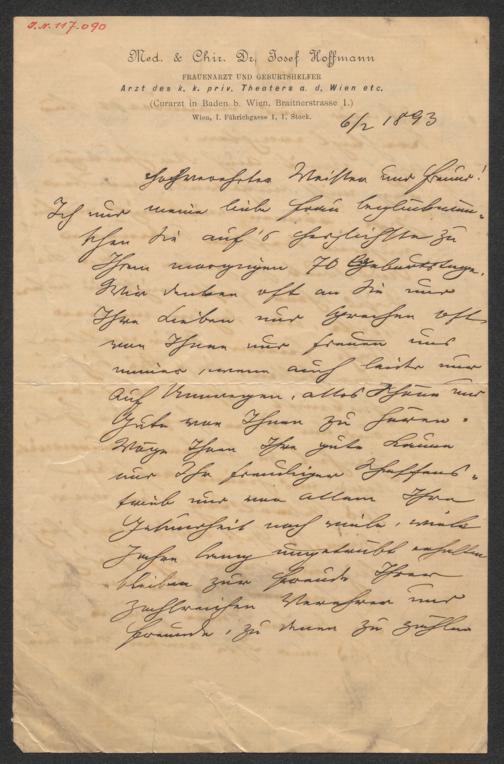 J.N. 117.090
Med. & Chir. Dr. Josef Hoffmann
FRAUENARZT UND GEBURTSHELFER
Arzt des k. k. priv. Theaters a. d. Wien etc.
(Curarzt in Baden b. Wien, Braitnerstrasse 1.)
Wien, I. Führichgasse 1, 1. Stock.
6/2 1893
Hochverehrter Meister und Freund!
Ich und meine liebe Frau beglückwün-
schen Sie auf's herzlichste zu
Ihrem morgigen 70 Geburtstage.
Wir denken oft an Sie und
Ihre Lieben und sprechen oft
von Ihnen und freuen uns
immer, wenn auch leider nur
auf Umwegen, alles Schöne und
Gute von Ihnen zu hören.
Möge Ihnen Ihre gute Laune
und Ihr freudiger Schaffens-
trieb und vor allem Ihre
Gesundheit noch viele, viele
Jahre lang ungetrübt erhalten
bleiben zur Freude Ihrer
zahlreichen Verehrer und
Freunde, zu denen zu zählen